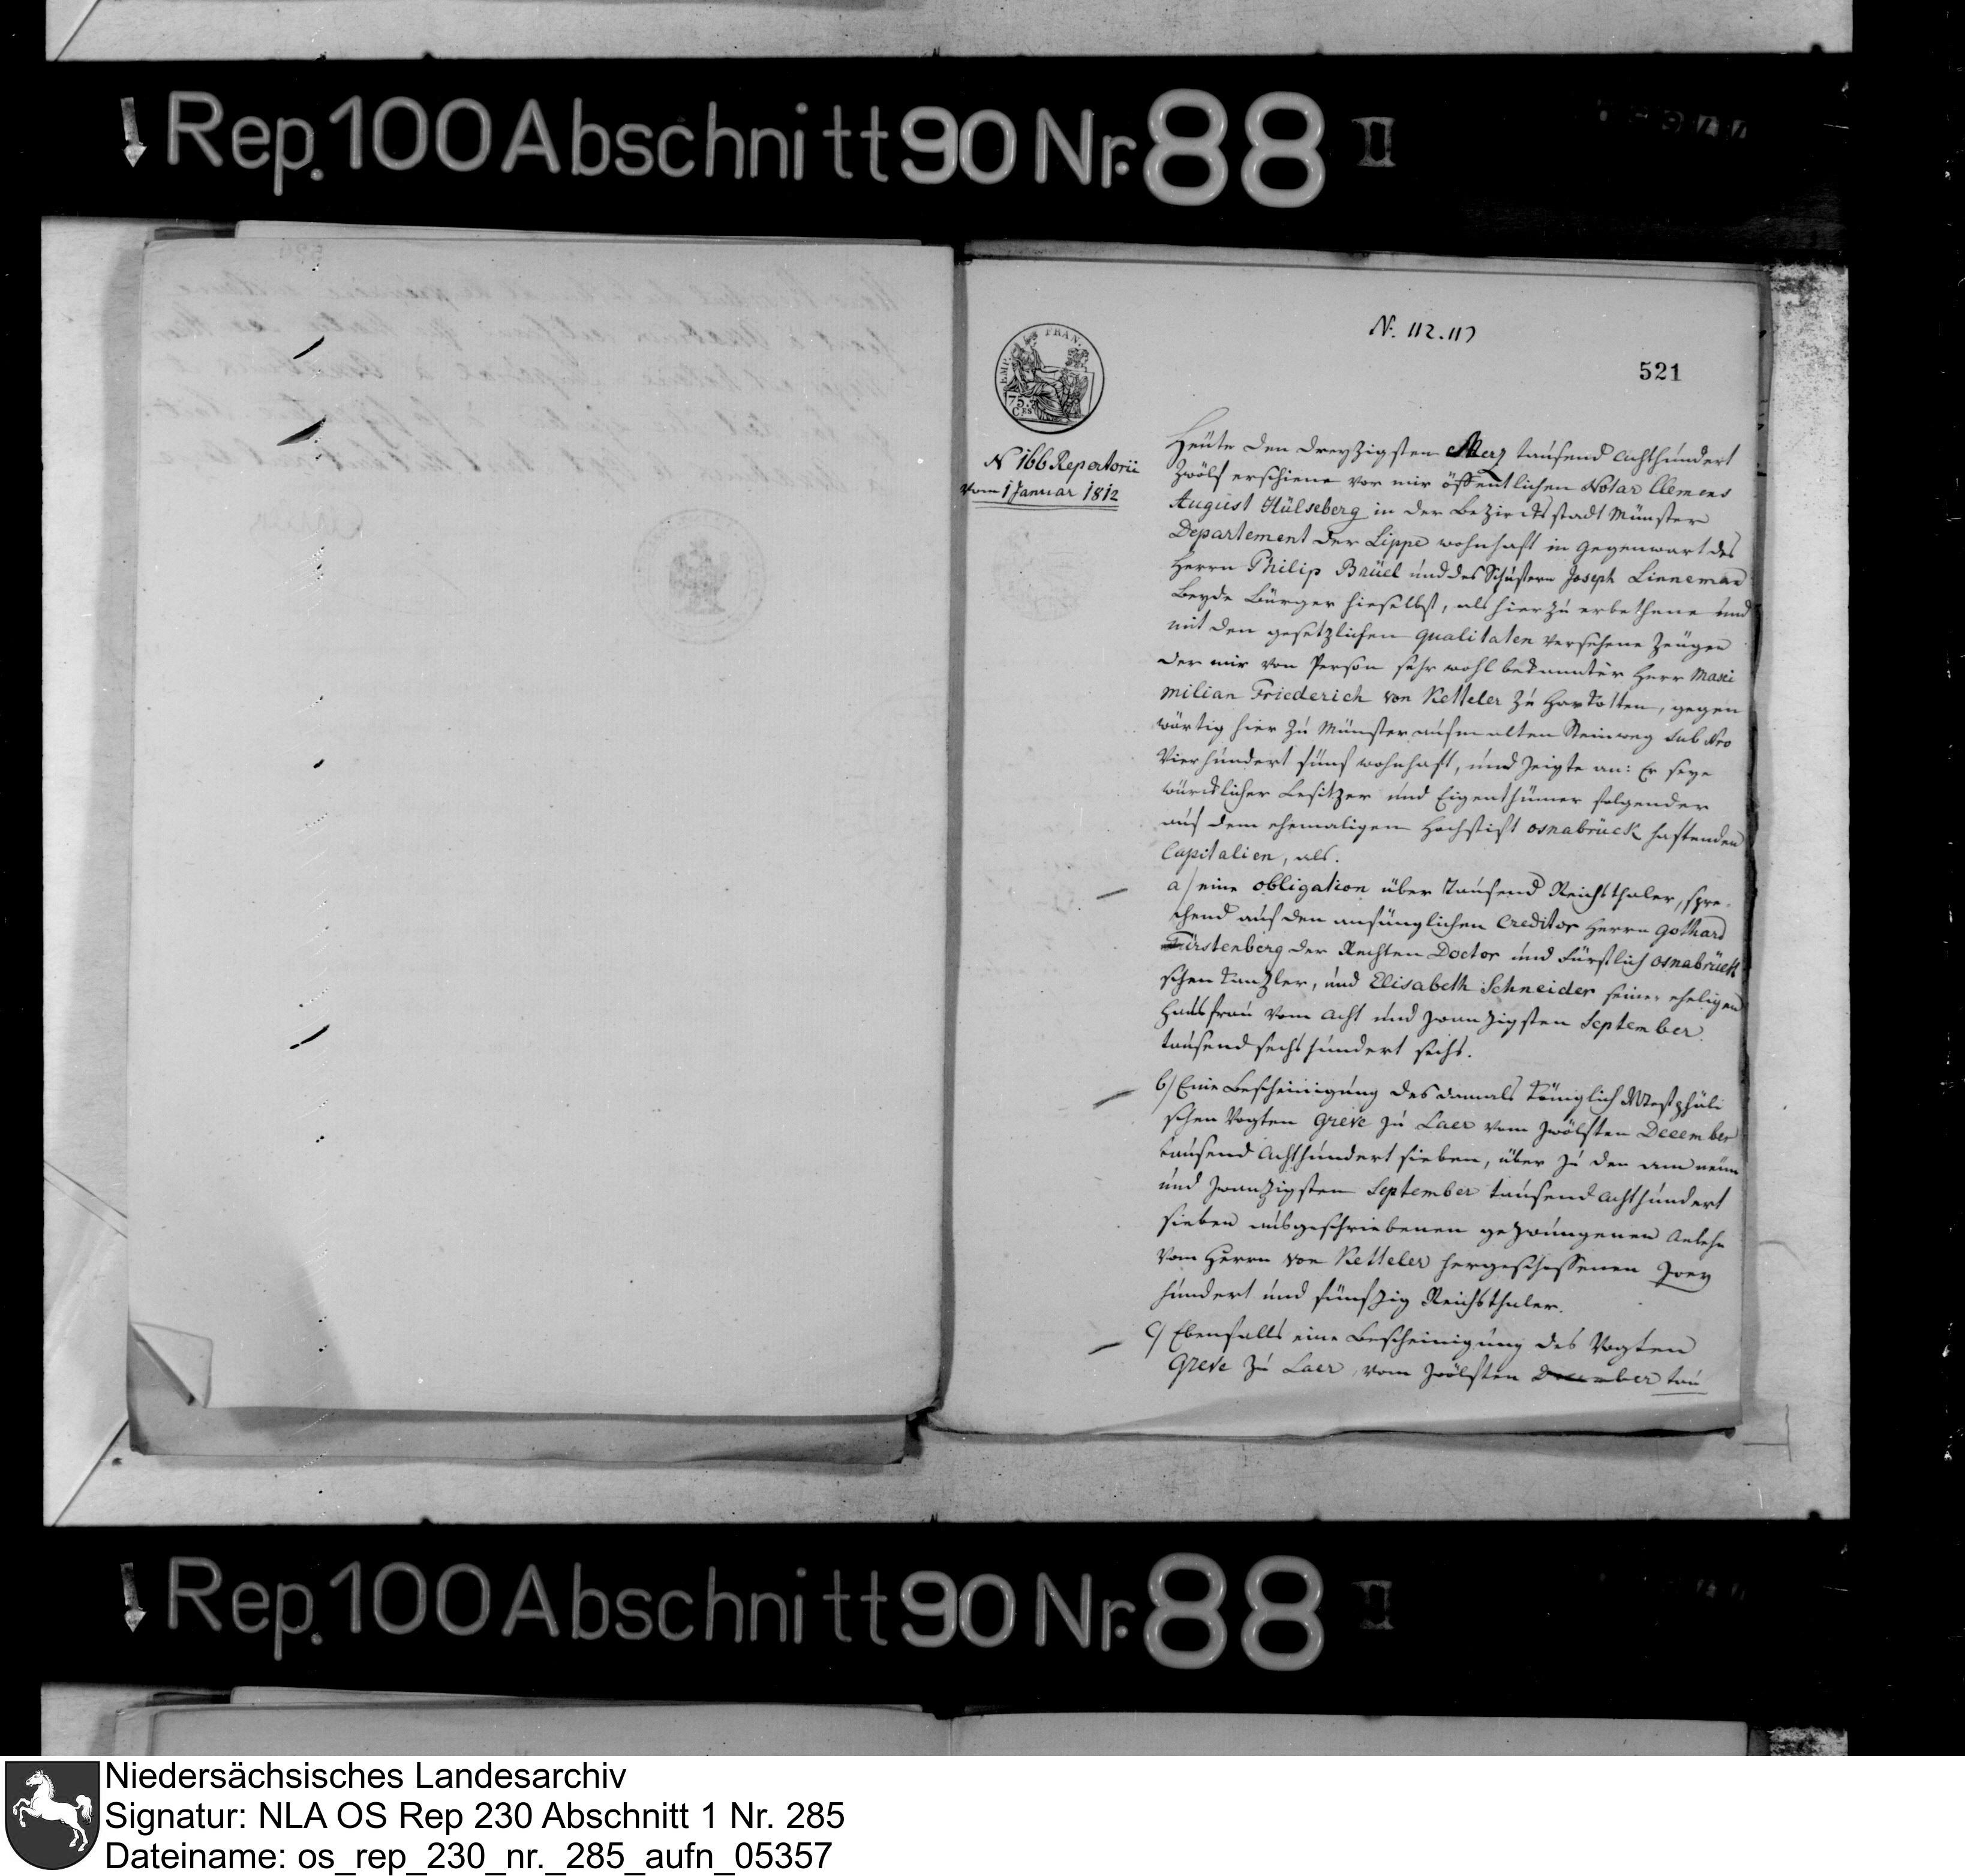 Rep. 100 Abschnitt 90 Nr. 88 II
N. 112. 117
521
EMP. FRAN.
75.
CES
N 166 Repertorii
vom 1 Januar 1812
Heüte den dreyzigsten Merz taüsend achthündert
zwölf erschiene vor mir öffentlichen Notar Clemens
Aügüst Hülseberg in der Bezircksstadt Münster
Departement der Lippe wohnhaft in Gegenwart des
Herrn Philip Braüel ünd des Schüstern Joseph Linneman
beyde Bürger hieselbst, als hierzü erbethene ünd
mit den gesetzlichen qualitaten versehene Zeügen
der mir von Person sehr wohl bekannter Herr Maxi
milian Friederich von Ketteler zü Harkotten, gegen
wärtig hier zü Münster aüfm alten Steinweg sub Nro
Vierhündert fünf wohnhaft, ünd zeigte an: Er seye
würcklicher Besitzer ünd Eigenthümer folgender
aüf dem ehemaligen Hochstift osnabrück haftenden
Capitalien, als.
a/ eine obligation über taüsend Reichsthaler, spre-
chend aüf den anfänglichen Creditor Herrn Gothard
Fürstenberg der Rechten Doctor ünd Fürstlich osnabrück
schen Kanzler, ünd Elisabeth Schneider seiner eheligen
Haüsfraü vom acht ünd zwanzigsten September
taüsend sechshündert sechs.
b/ Eine Bescheinigüng des damals Königlich Westphäli
schen Vogten Greve zü Laer vom zwölften December
taüsend achthündert sieben, über zü den am neün
ünd zwanzigsten September taüsend achthündert
sieben aüsgeschriebenen gezwüngenen Anlehn
vom Herrn von Ketteler hergeschossenen zwey
hündert ünd fünfzig Reichsthaler.
c/ Ebenfalls eine Bescheinigüng des Vogten
Greve zü Laer, vom zwölften December taü
Rep. 100 Abschnitt 90 Nr. 88 II
Niedersächsisches Landesarchiv
Signatur: NLA OS Rep 230 Abschnitt 1 Nr. 285
Dateiname: os_rep_230_nr._285_aufn_05357